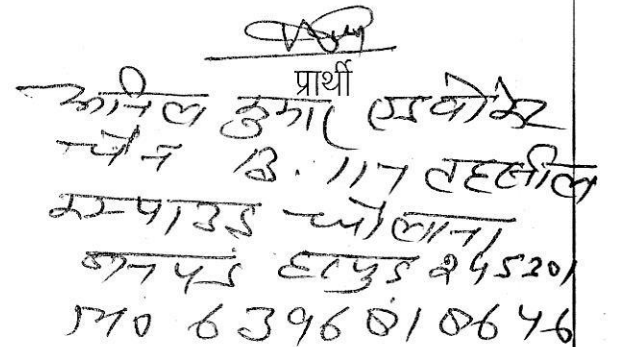 प्रार्थी
अनिल कुमार एडवोकेट
चै न B. 117 तहसील
कम्पाउंड धौलाना
जनपद हापुड 245301
mo 6396818646